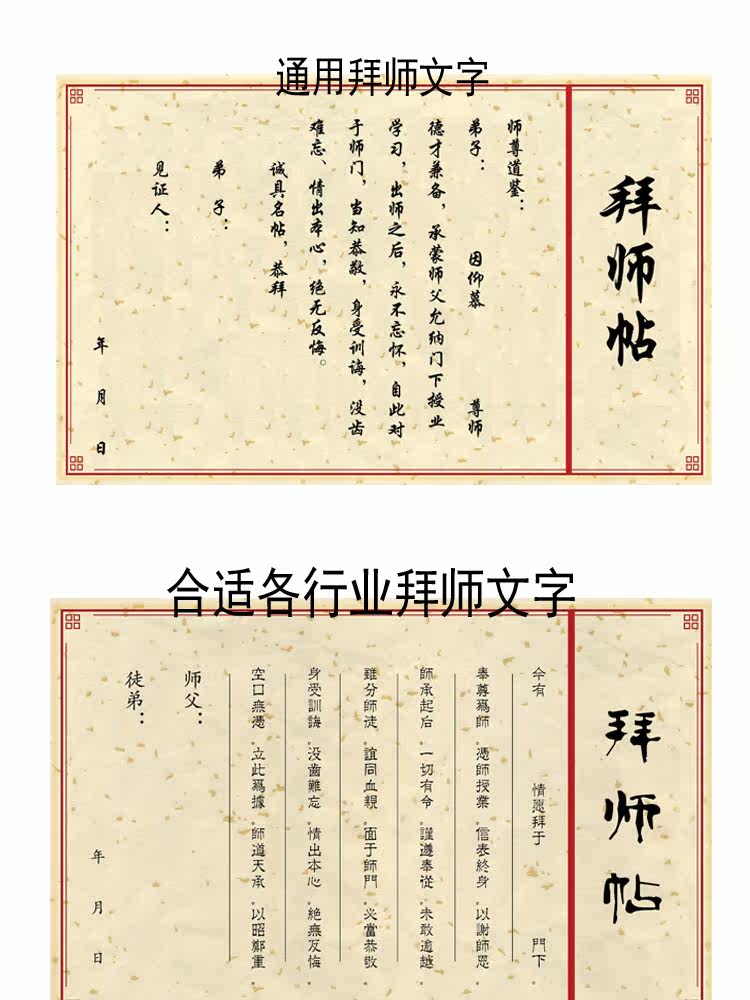 通用拜师文字
拜师帖
师尊道鉴：
弟子： 因仰慕 尊师
德才兼备，承蒙师父允纳门下授业
学习，出师之后，永不忘怀，自此对
于师门，当知恭敬，身受训诲，没齿
难忘、情出本心，绝无反悔。
诚具名帖，恭拜
弟子：
见证人：
年 月 日
合适各行业拜师文字
拜师帖
今有 情愿拜于 門下。
奉尊爲師。憑師授業。信表終身。以謝師恩。
師承起后。一切有令。謹遵奉從。未敢逾越。
雖分師徒。誼同血親。面于師門。必當恭敬。
身受訓誨。没齒難忘。情出本心。絕無反悔。
空口無憑。立此爲據。師道天承。以昭鄭重。
师父：
徒弟：
年 月 日